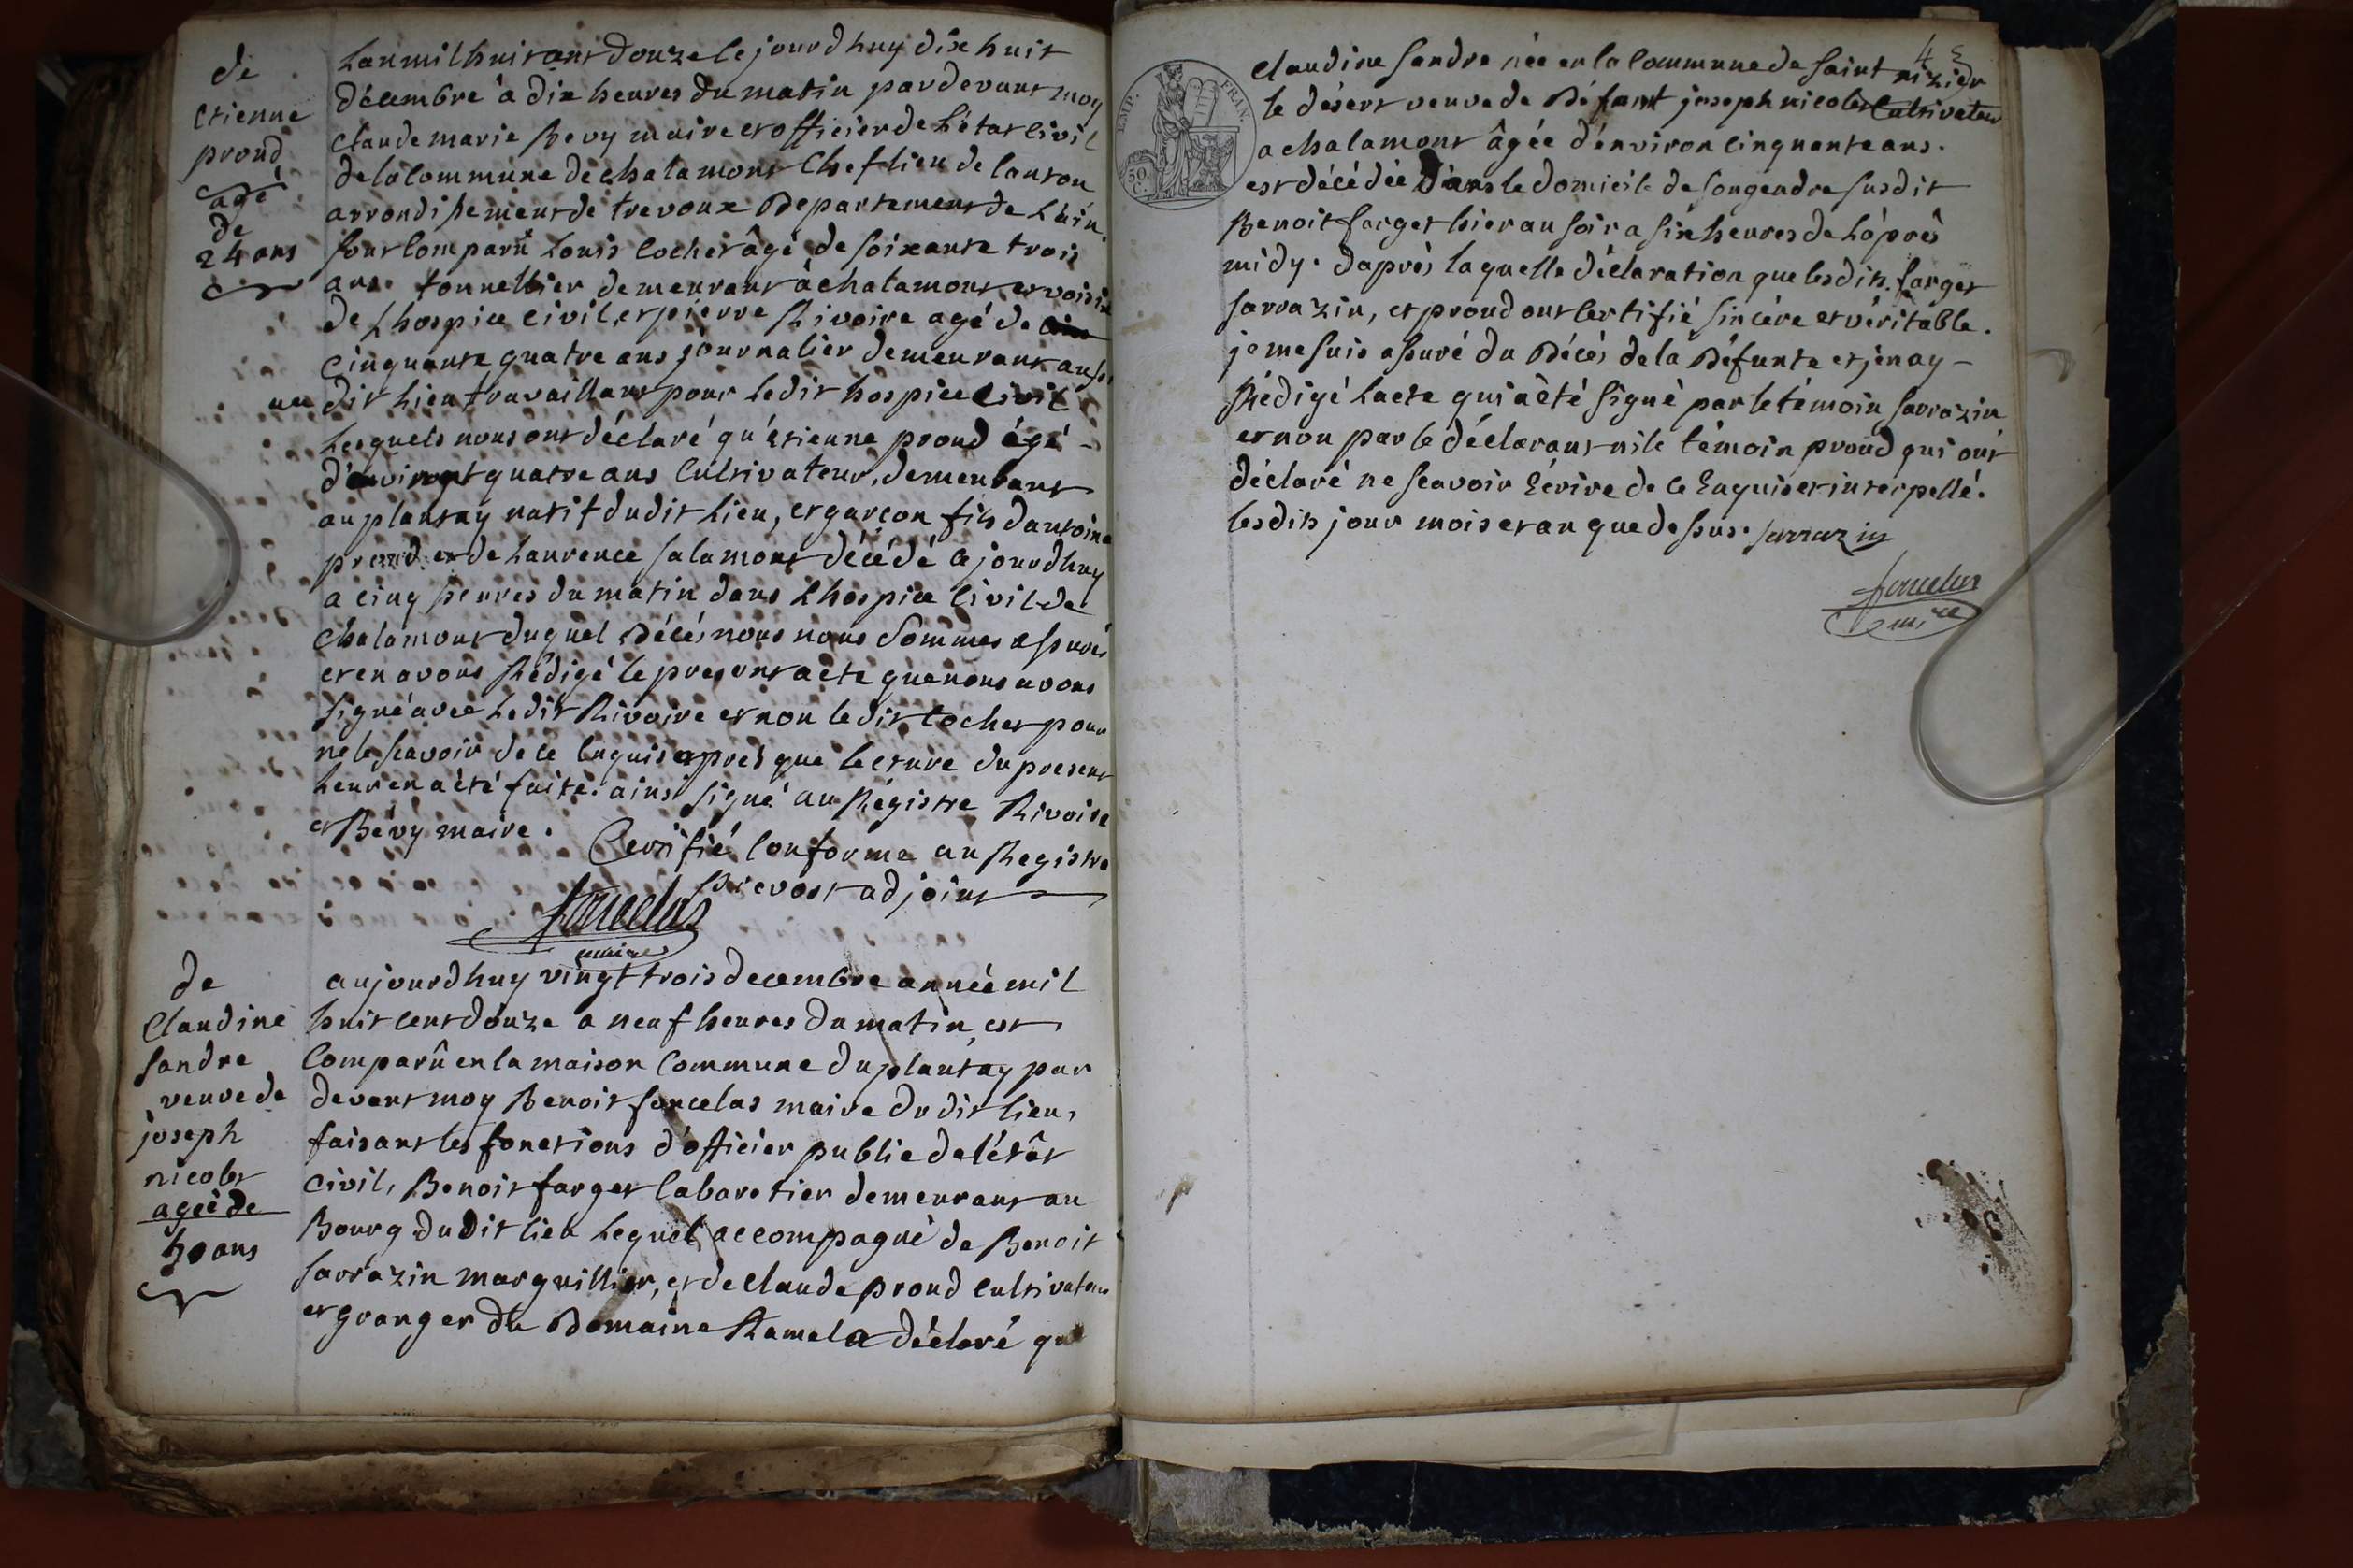 de
etienne
prond
agé
de
24 ans
Lan mil huit cent douze le jourdhuy dix huit
décembre à dix heures du matin pardevant moy
Claude marie Bevy maire et officier de L'état civil
de la Commune de chalamont Chef lieu de Canton
arrondissement de trevoux Departement de L'ain.
sont Comparu Louis Cochet âgé de soixante trois
ans tonnellier demeurant à chalamont et voisin
de Lhospice civil, et pierre Rivoire agé de
Cinquante quatre ans journalier demeurant aussi
au dit Lieu travaillant pour Ledit hospice Civil
Lesquels nous ont déclaré qu'etienne prond âgé
de vingt quatre ans Cultivateur, demeurant
au plantay natif dudit Lieu, et garçon fils dantoine
prond et de Laurence salamont décédé ce jourdhuy
a cinq heures du matin dans Lhospice Civil de
Chalamont duquel Décés nous nous sommes assurés
et en avons Rédigé le present acte que nous avons
signé avec Ledit Rivoire et non ledit Cochet pour
ne le sçavoir de ce Enquis après que lecture du present
Leur en a été faite. ainsi signé au Régistre Rivoire
et Bévy maire.
Certifié Conforme au Registre
Prevost adjoint
forcelas
maire
de
Claudine
sandre
veuve de
joseph
nicolet
ageé de
50 ans
aujourdhuy vingt trois decembre année mil
huit cent douze a neuf heures du matin, est
Comparû en la maison Commune du plantay par
devant moy Benoit forcelas maire du dit lieu,
faisant les fonctions d'officier public de l'étât
civil, Benoit farget Cabaretier demeurant au
Bourg du dit lieu Lequel accompagné de Benoit
sarrazin marguillier, et de Claude prond cultivateur
et granger du Domaine Ramel a déclaré que
4
EMP. FRAN.
50 C.
Claudine sandre née en la Commune de saint nizier
le désert veuve de Défunt joseph nicolet Cultivateur
a chalamont âgée d'environ Cinquante ans.
est décédée Dans le domicile de son gendre susdit
Benoit farget hier au soir a six heures de L'aprês
midy. d'après laquelle déclaration que lesdits farget
sarrazin, et prond ont Certifié sincère et véritable.
je me suis assuré du Décés de la Défunte et j'en ay
Rédigé Lacte qui a êté signé par le témoin sarrazin
et non par le déclarant ni le témoin prond qui ont
déclaré ne sçavoir Ecrire de ce Enquis et interpellé.
les dits jour mois et an que dessus. sarrazin
forcelas
maire